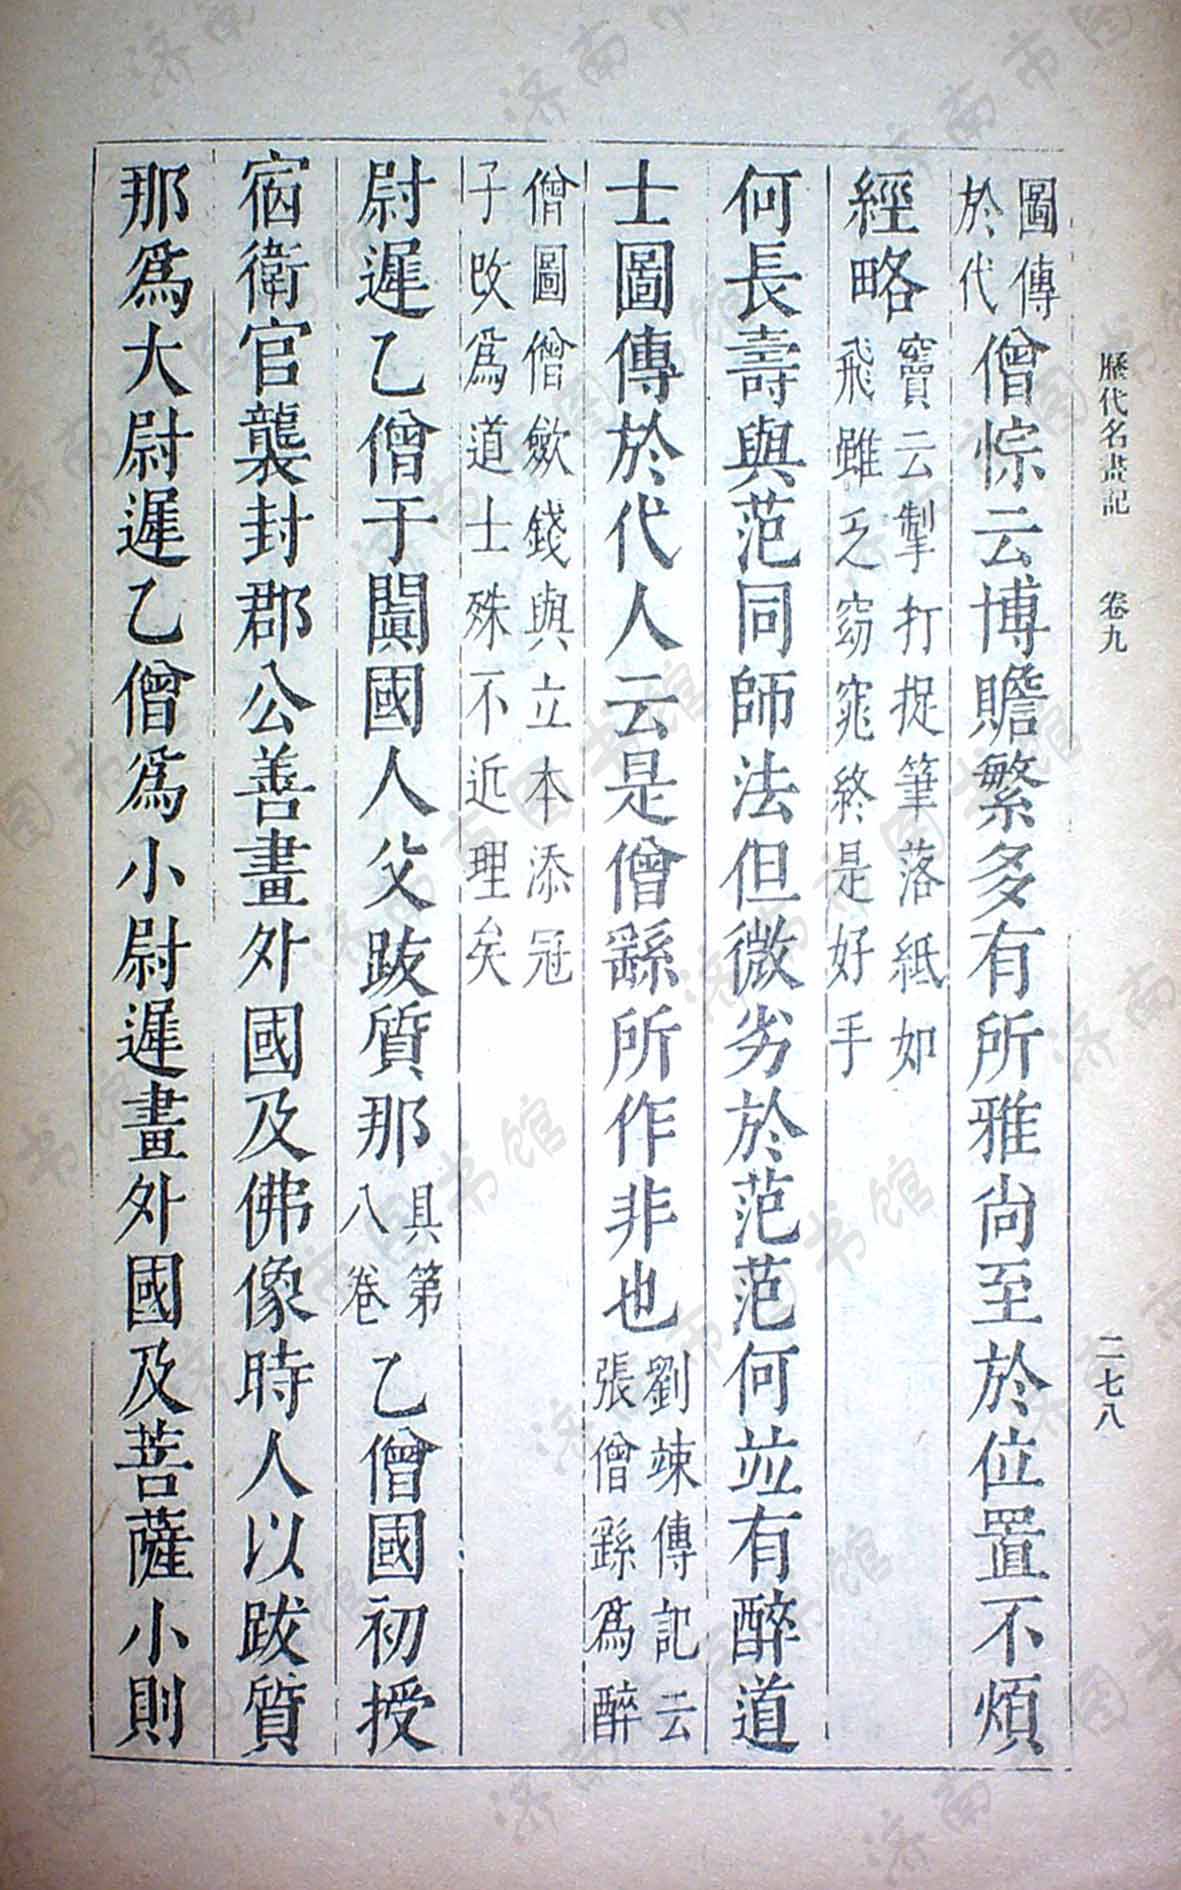 歷代名畫記 卷九 二七八
圖傳於代僧悰云博贍繁多有所雅尚至於位置不煩
經略竇云掣打捉筆落紙如飛雖乏窈窕終是好手
何長壽與范同師法但微劣於范范何竝有醉道
士圖傳於代人云是僧繇所作非也劉竦傳記云張僧繇爲醉
僧圖僧歛錢與立本添冠子改爲道士殊不近理矣
尉遲乙僧于闐國人父跋質那具第八卷乙僧國初授
宿衛官襲封郡公善畫外國及佛像時人以跋質
那爲大尉遲乙僧爲小尉遲畫外國及菩薩小則
济南市图书馆